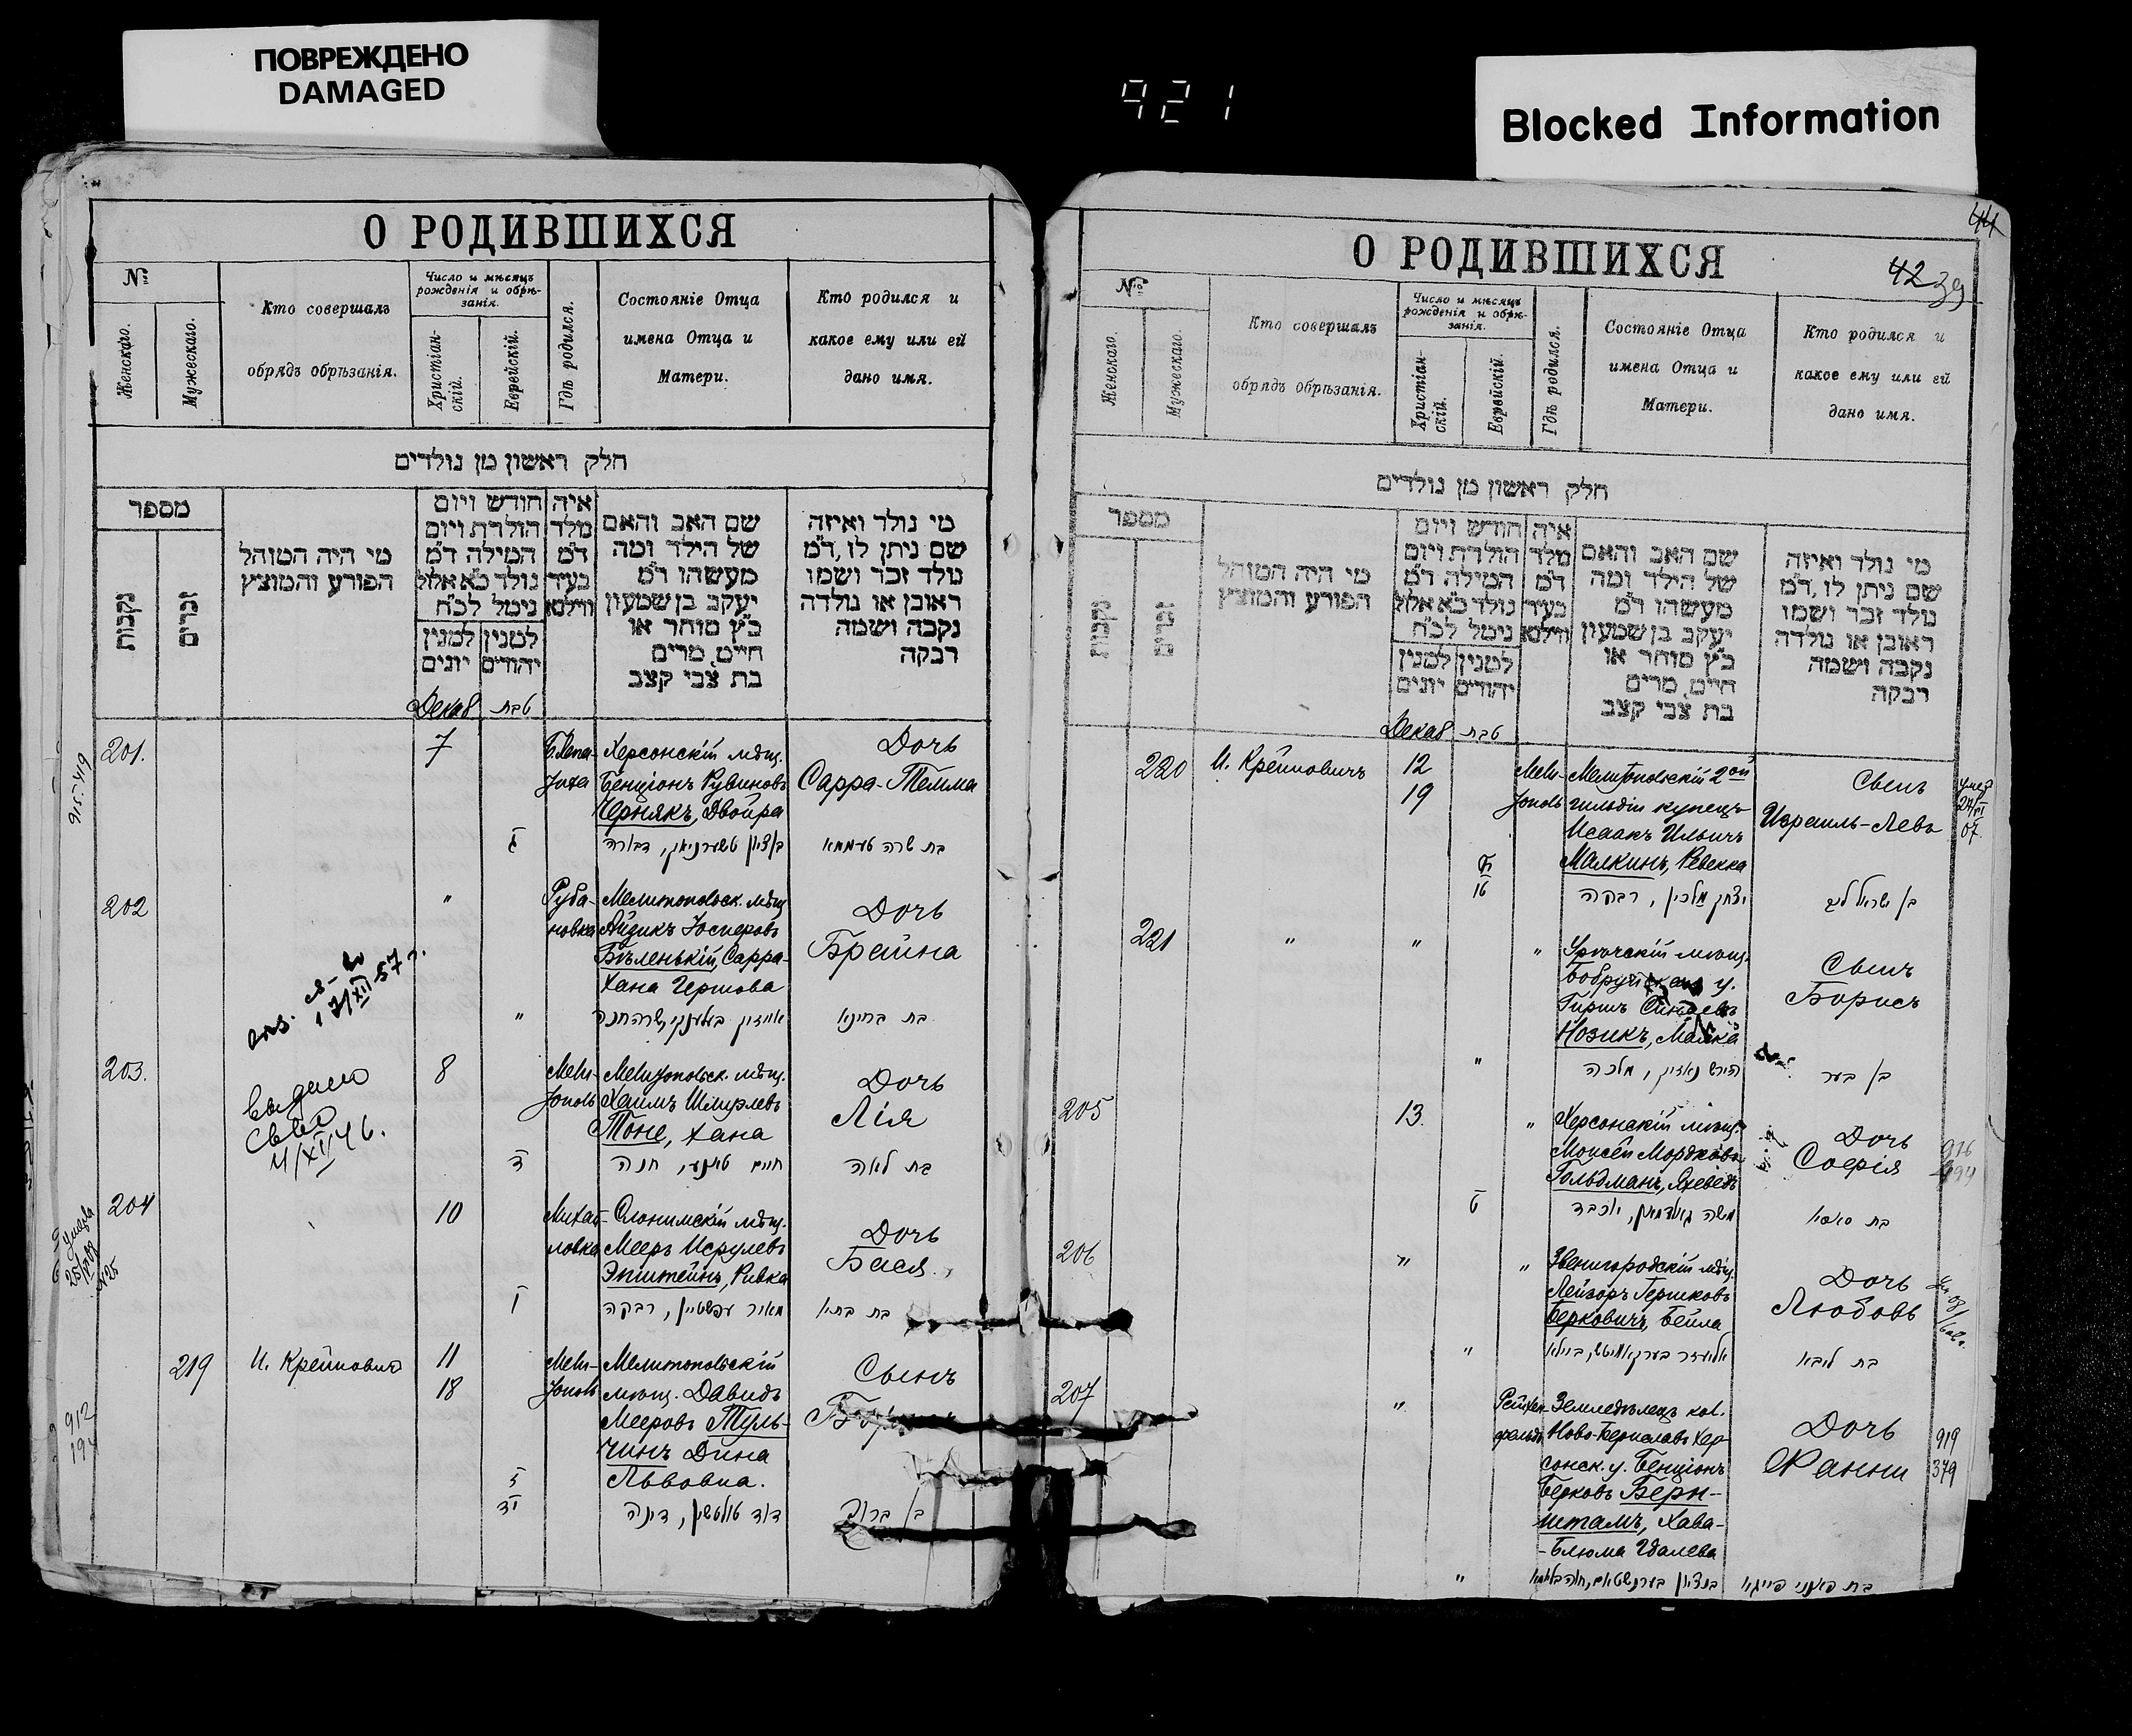 ПОВРЕЖДЕНО
DAMAGED
921
Blocked Information
О РОДИВШИХСЯ
№
Женскаго.
Мужескаго.
Кто совершалъ
обрядъ обрѣзанія.
Число и мѣсяцъ
рожденія и обрѣ-
занія.
Христіан-
скій.
Еврейскій.
Гдѣ родился.
Состояніе Отца
имена Отца и
Матери.
Кто родился и
какое ему или ей
дано имя.
חלק ראשון מן נולדים
מספר
נקבות
זכרים
מי היה המוהל
הפורע והמוצץ
חודש ויום
הולדת ויום
המילה ד״מ
נולד כ״א אלול
נימל לכ״ח
למנין למנין
יהודים יונים
איה
מלד
ד״מ
בעיר
ווילנא
שם האב והאם
של הילד ומה
מעשהו ד״מ
יעקב בן שמעון
כ״ץ סוחר או
חיים, מרים
בת צבי קצב
מי נולד ואיזה
שם ניתן לו, ד״מ
נולד זכר ושמו
ראובן או נולדה
נקבה ושמה
רבקה
Декаб טבת
201. 7
Херсонскій мѣщ.
Бенціонъ Рувиновъ
Чернякъ, Двойра
Дочь
Сарра-Темма
ג
בן ציון טשערניאק, דבורה
בת שרה טעממא
915-419
202 "
Руба-
новка
Мелитопольск. мѣщ.
Айзикъ Іосиповъ
Бѣленькій, Сарра-
Хана Гершова
Дочь
Брейна
"
17/XII-57 г.
203. 8
Мели-
тополь
Мелитопольск. мѣщ.
Хаимъ Шмулевъ
Тоне, Хана
Дочь
Лія
ד
חיים טאנע, חנה
בת לאה
Выдано
св-во
4/XII 46.
204 10
Михай-
ловка
Слонимскій мѣщ.
Мееръ Исрулевъ
Эпштейнъ, Ривка
Дочь
Бася.
ו
מאיר עפשטיין, רבקה
בת בתיא
Умерла
№25
219 И. Крейновичъ 11
18
Мели-
тополь
Мелитопольскій
мѣщ. Давидъ
Мееровъ Туль-
чинъ Дина
Львовна.
Сынъ
ז
יד
דוד טולטשין, דינה
בן ברוך
912
194
О РОДИВШИХСЯ
44
42 39
№
Женскаго.
Мужескаго.
Кто совершалъ
обрядъ обрѣзанія.
Число и мѣсяцъ
рожденія и обрѣ-
занія.
Христіан-
скій.
Еврейскій.
Гдѣ родился.
Состояніе Отца
имена Отца и
Матери.
Кто родился и
какое ему или ей
дано имя.
חלק ראשון מן נולדים
מספר
נקבות
זכרים
מי היה המוהל
הפורע והמוצץ
חודש ויום
הולדת ויום
המילה ד״מ
נולד כ״א אלול
נימל לכ״ח
למנין למנין
יהודים יונים
איה
מלד
ד״מ
בעיר
ווילנא
שם האב והאם
של הילד ומה
מעשהו ד״מ
יעקב בן שמעון
כ״ץ סוחר או
חיים, מרים
בת צבי קצב
מי נולד ואיזה
שם ניתן לו, ד״מ
נולד זכר ושמו
ראובן או נולדה
נקבה ושמה
רבקה
Декаб טבת
220 И. Крейновичъ 12
19
Мели-
тополь
Мелитопольскій 2ой
гильдіи купецъ
Исаакъ Ильичъ
Малкинъ, Ревекка
Сынъ
Израиль-Левъ
יצחק מלכין, רבקה
בן ישראל ליב
221 " " "
мѣщ.
Бобруйскаго у.
Гиршъ
Нозикъ, Малка
Сынъ
Борисъ
"
הירש נאזיק, מלכה
בן בער
205 13. "
Херсонскій мѣщ.
Моисей Мордковъ
Гольдманъ, Яхеведъ
Дочь
Софія
ט
משה גאלדמאן, יוכבד
בת סאפיא
916
194
206 " "
Звенигородскій мѣщ.
Лейзоръ Гершковъ
Берковичъ, Бейла
Дочь
Любовь
"
אליעזר בערקאוויטש, ביילא
בת ליבא
207 "
Рейхен-
фельдъ
Земледѣлецъ кол.
Ново-Бериславъ Хер-
сонск. у. Бенціонъ
Берковъ Берн-
штамъ, Хава-
-Блюма Гдалева
Дочь
Фанни
919
379
"
בנציון בערנשטאם, חוה בלומא
בת פאני פייגא